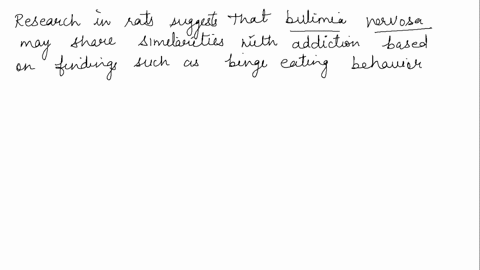 Research in rats suggests that bulimia nervosa
may share similarities with addiction based
on findings such as binge eating behavior